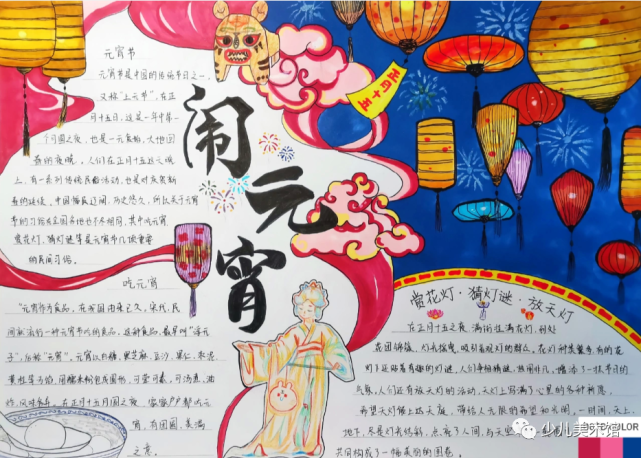 元宵节
元宵节是中国的传统节日之一,
又称"上元节",在正
月十五日,这是一年中第
一个月圆之夜,也是一元复始,大地回
春的夜晚。人们在正月十五这天晚
上,有一系列传统民俗活动,也是对庆贺新
春的延续,中国幅员辽阔,历史悠久,所以关于元宵
季的习俗在全国各地也不尽相同,其中吃元宵
赏花灯、猜灯谜等是元宵节几项重要
的民间习俗。
吃元宵
"元宵作为食品,在我国由来已久,宋代,民
间就流行一种元宵节吃的食品,这种食品,最早叫"浮元
子",后称"元宵",元宵以白糖、黑芝麻、豆沙、果仁、枣泥
黄桂等为馅,用糯米粉包成圆形,可荤可素,可汤煮、油
炸,风味各异,在正月十五月圆之夜,家家户户都吃元
宵,有团圆、美满
之意。
闹元宵
正月十五
赏花灯·猜灯谜·放天灯
在正月十五之夜,满街挂满花灯,到处
花团锦簇,灯光摇曳,吸引着观灯的群众,花灯种类繁多,有的花
灯下还贴着有趣的灯谜,人们争相猜谜
气氛,人们还有放天灯的活动,天灯上写满了心里的各种祈愿,
希望天灯带上放天庭,带给人无限的希望和光明,一时间,天上,
地下,尽是灯光灿灿,点亮了人间
共同构成了一幅美丽的图卷。
少儿美术馆
COLOR